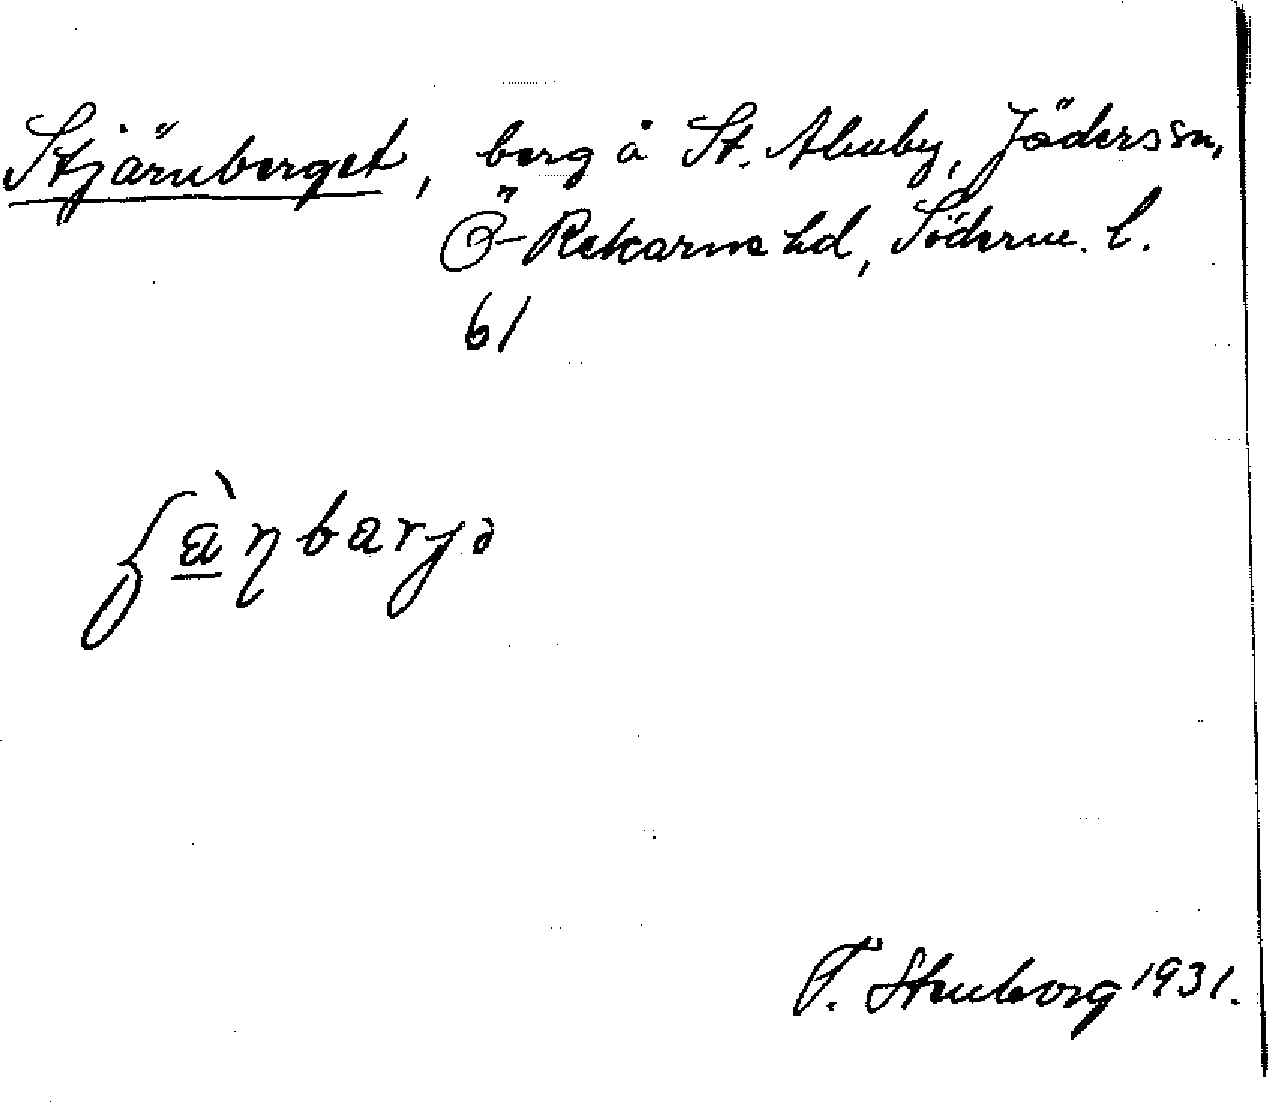 Stjärnberget, berg å St. Almby, Jäders sn,
Ö-Rekarne hd, Söderm. l.
61
ʃæ̀ɳbarjə
T. Stenborg 1931.